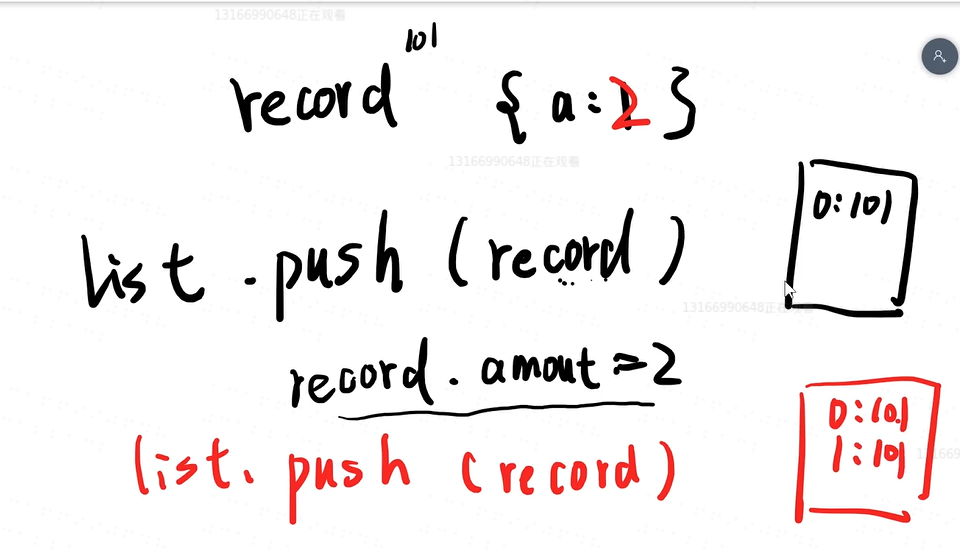 13166990648正在观看
101
record { a:2 }
13166990648正在观看
0:101
list.push(record)
13166990648正在观看
record.amout=2
0:101
list.push(record)
1:101